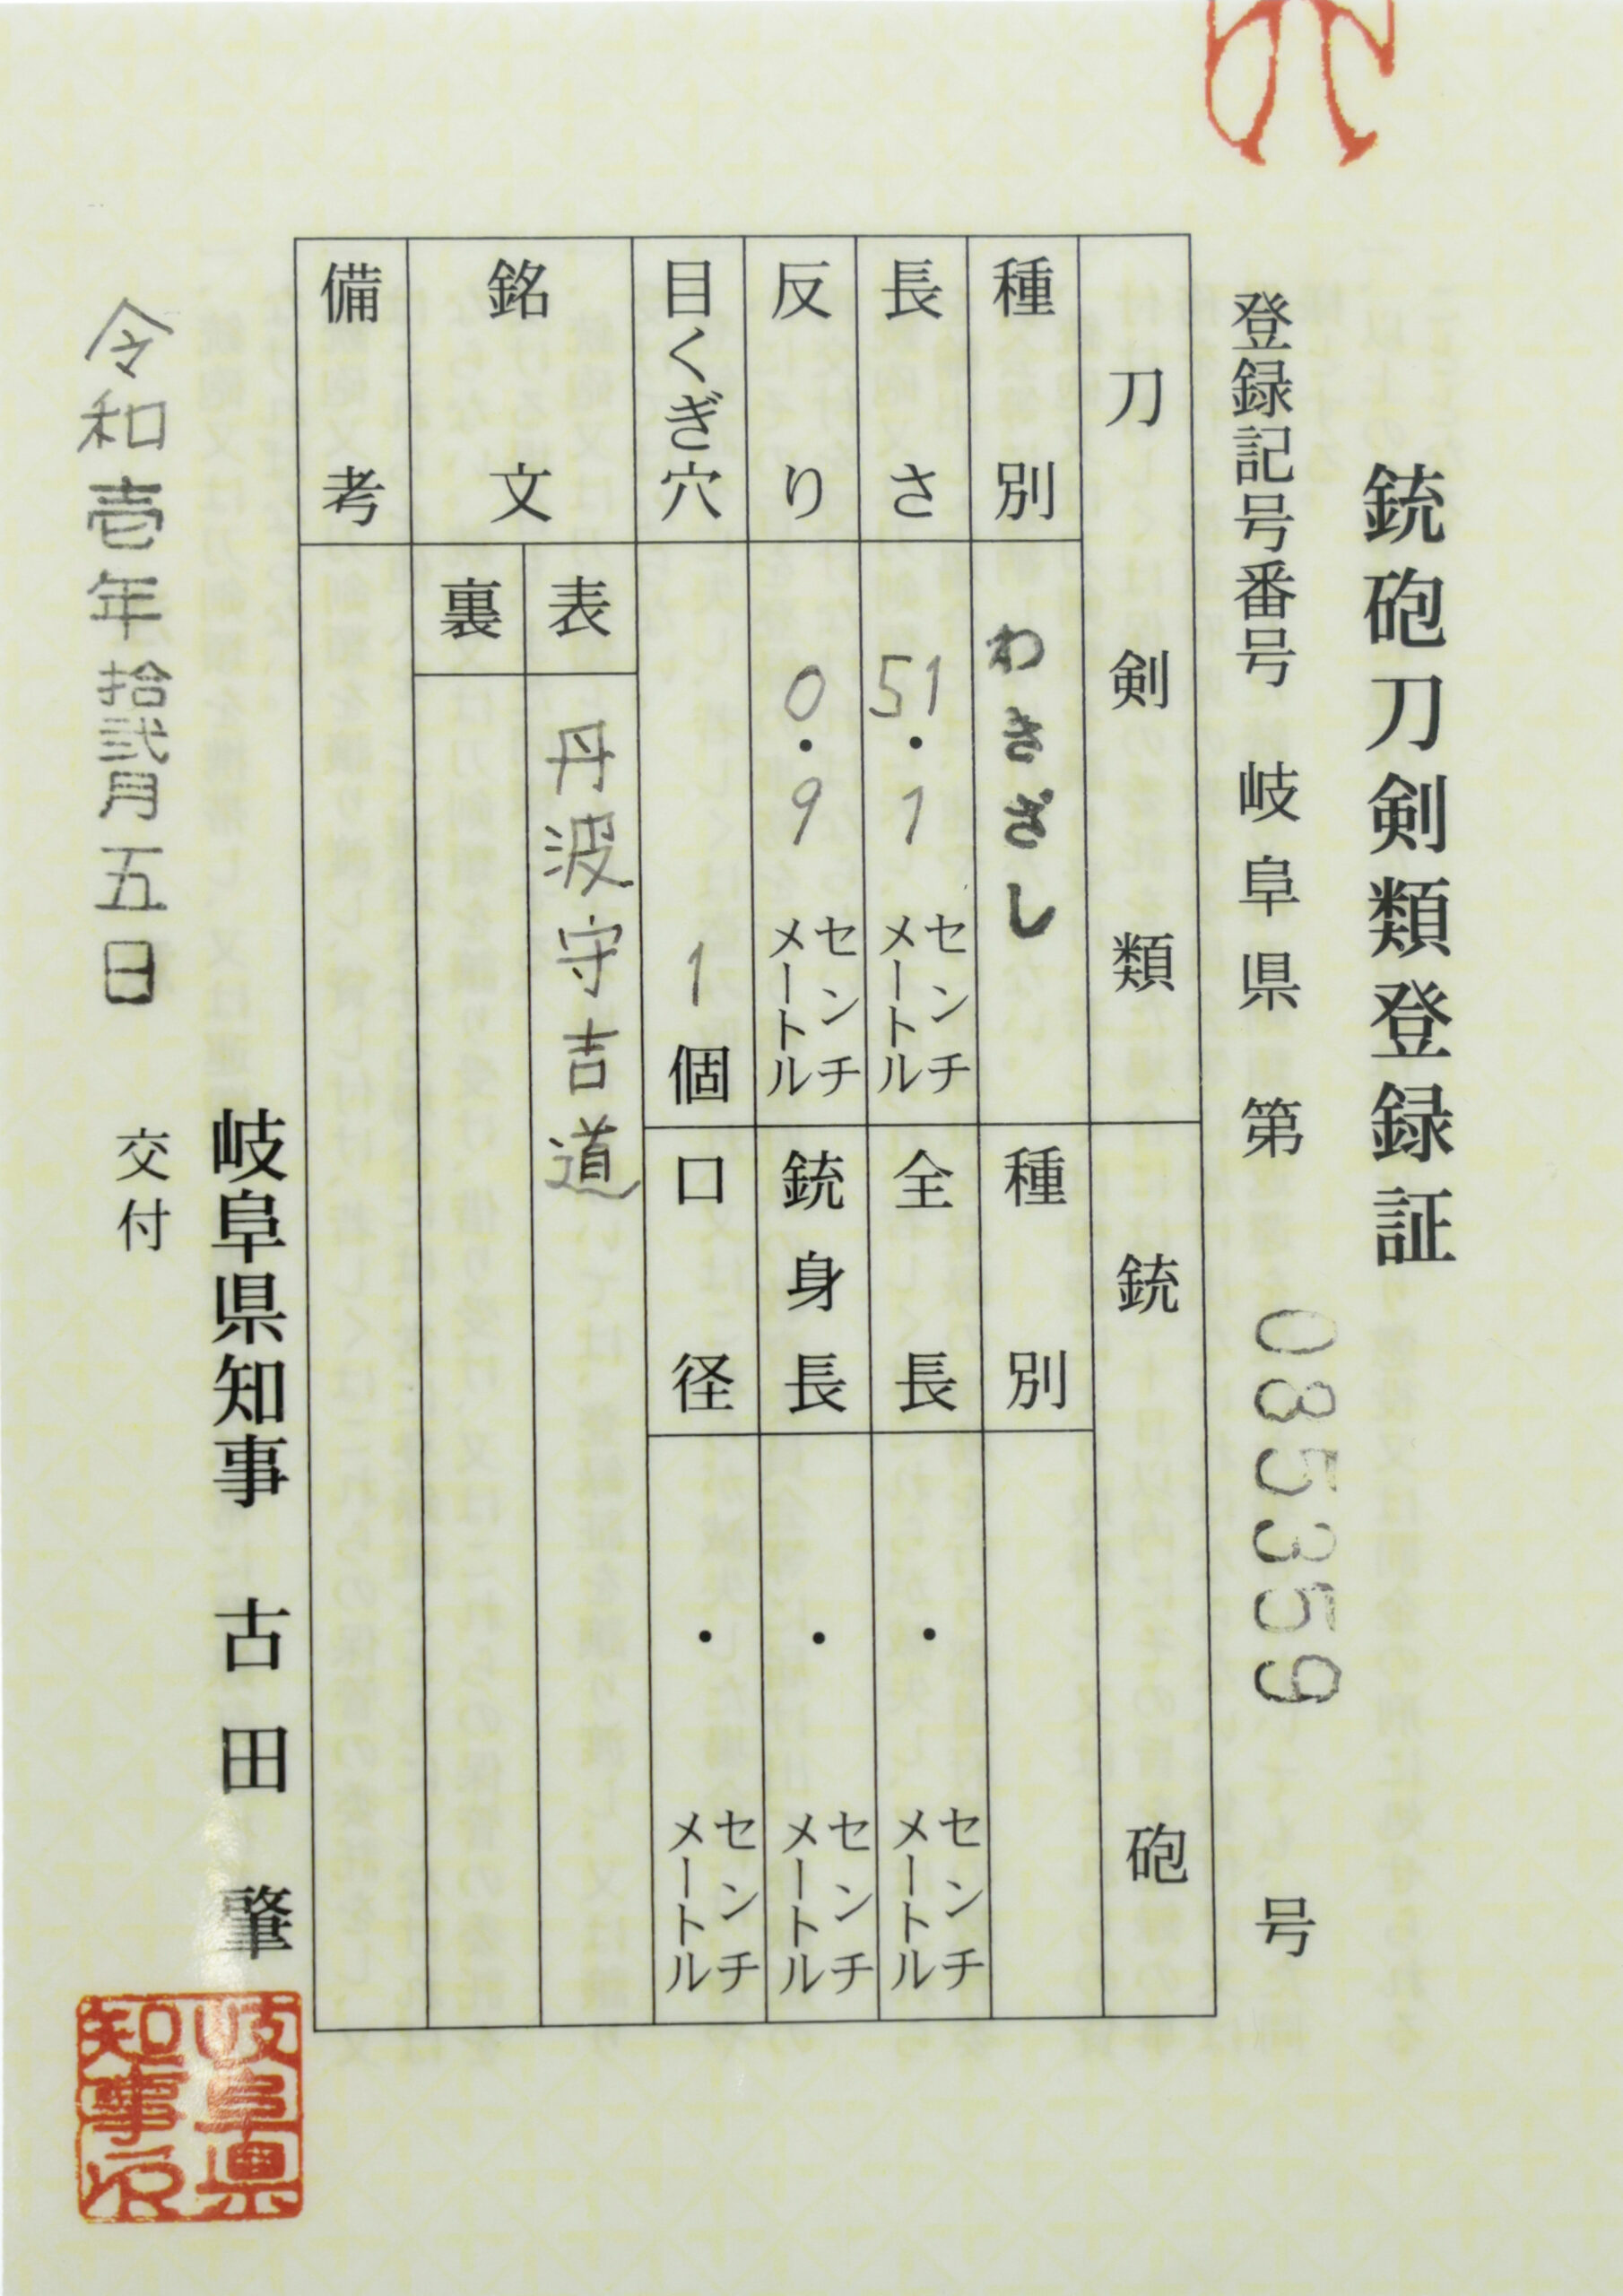 銃砲刀剣類登録証
登録記号番号 岐阜県 第 085359 号
刀剣類
種別 わきざし
長さ 51.1 センチメートル
反り 0.9 センチメートル
目くぎ穴 1個
銘文 表 丹波守吉道
裏
備考
銃砲
種別
全長 ・ センチメートル
銃身長 ・ センチメートル
口径 ・ センチメートル
岐阜県知事 古田 肇
令和壱年拾弐月五日 交付
岐阜県知事之印